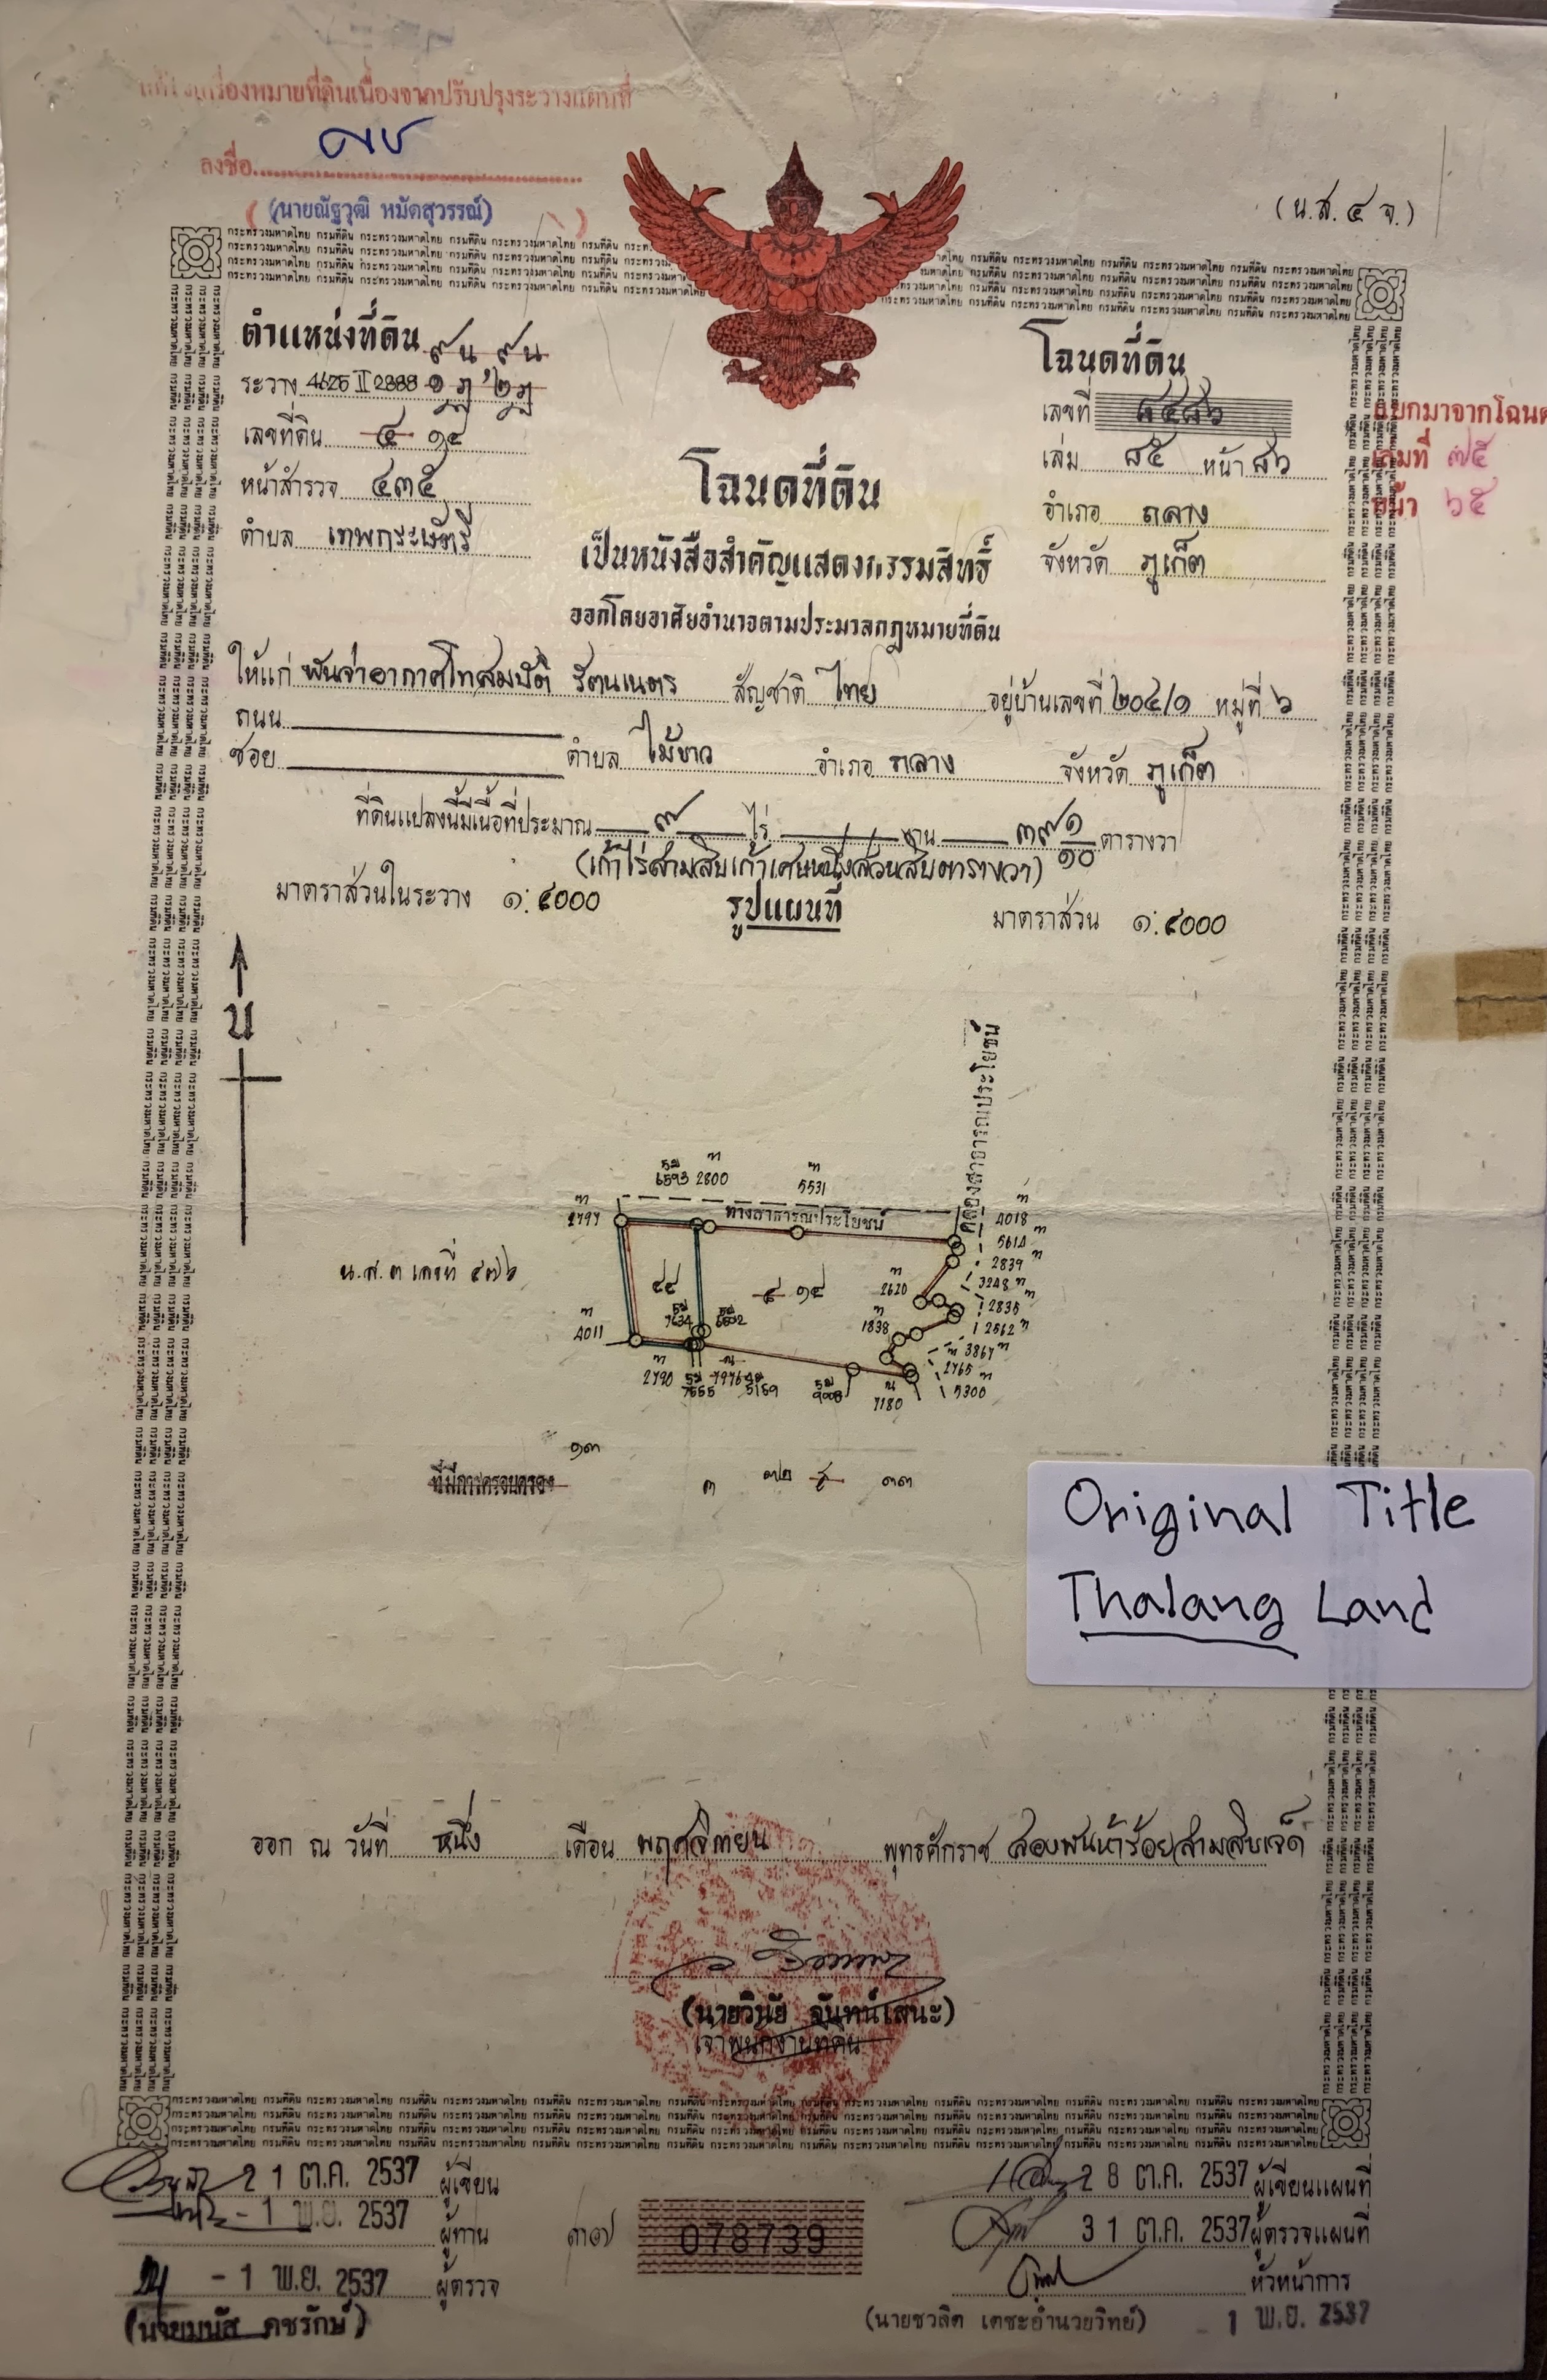 เครื่องหมายที่ดินเนื่องจากปรับปรุงระวางแผนที่
ลงชื่อ
(นายณัฐวุฒิ หมัดสุวรรณ์)
(น.ส.๔ จ.)
ตำแหน่งที่ดิน
ระวาง 4625 II 2888
เลขที่ดิน ๔ ๑๔
หน้าสำรวจ ๔๓๕
ตำบล เทพกระษัตรี
โฉนดที่ดิน
เลขที่ ๘๔๘๖
เล่ม ๘๕ หน้า ๘๖
อำเภอ ถลาง
จังหวัด ภูเก็ต
แยกมาจากโฉนด
เล่มที่ ๗๕
หน้า ๖๕
โฉนดที่ดิน
เป็นหนังสือสำคัญแสดงกรรมสิทธิ์
ออกโดยอาศัยอำนาจตามประมวลกฎหมายที่ดิน
ให้แก่ พันจ่าอากาศโทสมบัติ รัตนเนตร สัญชาติ ไทย อยู่บ้านเลขที่ ๒๐๔/๑ หมู่ที่ ๖
ถนน
ซอย ตำบล ไม้ขาว อำเภอ ถลาง จังหวัด ภูเก็ต
ที่ดินแปลงนี้มีเนื้อที่ประมาณ ๙ ไร่ งาน ๓๙ ๑/๑๐ ตารางวา
(เก้าไร่สามสิบเก้าเศษหนึ่งส่วนสิบตารางวา)
มาตราส่วนในระวาง ๑:๔๐๐๐ รูปแผนที่ มาตราส่วน ๑:๔๐๐๐
น
คลองสาธารณประโยชน์
6593 2800 5531
ทางสาธารณประโยชน์
2797
4018
5614
2839
3248
2620
2835
น.ส.๓ เลขที่ ๔๗๖
๔๔
๔ ๑๔
1838
2562
3867
4011
7634
2765
5300
2790
7555
7976
5159
9008
7180
๑๓
ที่มีการครอบครอง
๓ ๓๒ ๕ ๓๓
Original Title
Thalang Land
ออก ณ วันที่ หนึ่ง เดือน พฤศจิกายน พุทธศักราช สองพันห้าร้อยสามสิบเจ็ด
(นายวินัย จันทน์เสนะ)
เจ้าพนักงานที่ดิน
21 ต.ค. 2537 ผู้เขียน
- 1 พ.ย. 2537 ผู้ทาน
- 1 พ.ย. 2537 ผู้ตรวจ
(นายมนัส คชรักษ์)
078739
28 ต.ค. 2537 ผู้เขียนแผนที่
31 ต.ค. 2537 ผู้ตรวจแผนที่
หัวหน้าการ
(นายชวลิต เตชะอำนวยวิทย์) - 1 พ.ย. 2537